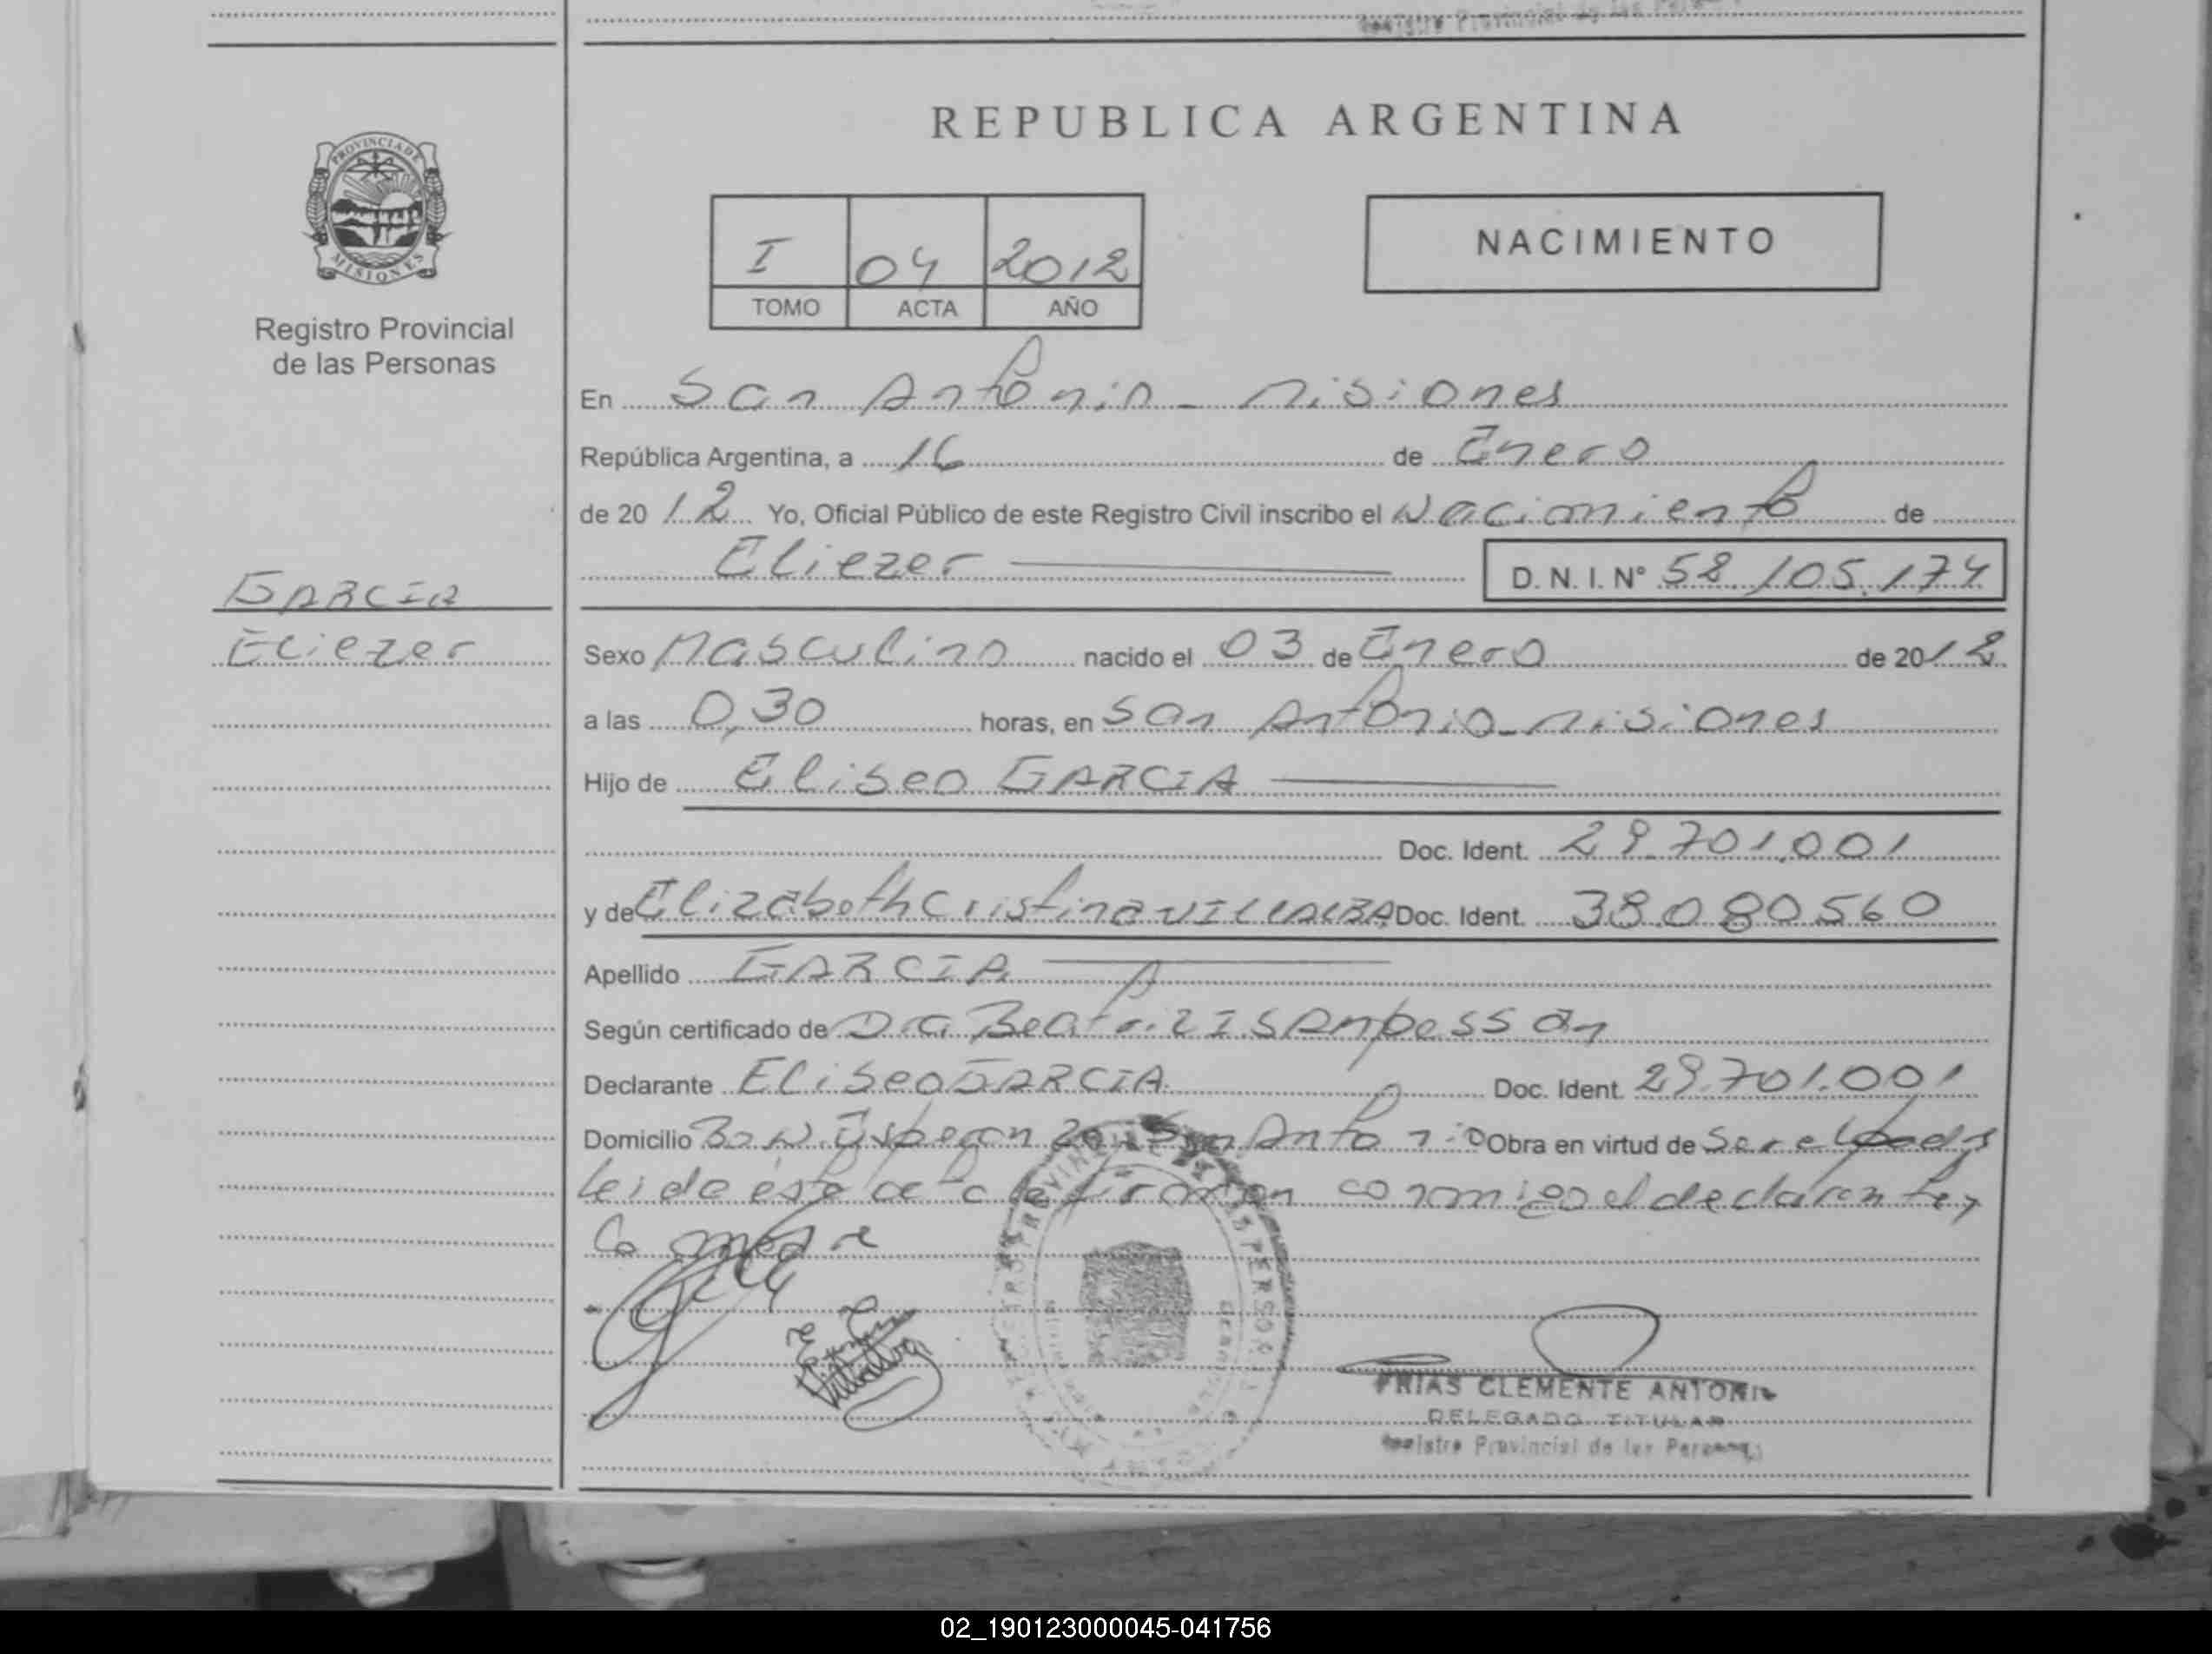 REPUBLICA ARGENTINA
PROVINCIA DE
MISIONES
Registro Provincial
de las Personas
I 04 2012
TOMO ACTA AÑO
NACIMIENTO
En San Antonio - Misiones
República Argentina, a 16 de Enero
de 2012 Yo, Oficial Público de este Registro Civil inscribo el Nacimiento de
Eliezer D. N. I. N° 52.105.174
GARCIA
Eliezer
Sexo Masculino nacido el 03 de Enero de 2012
a las 0,30 horas, en San Antonio - Misiones
Hijo de Eliseo GARCIA
Doc. Ident. 29.701.001
y de Elizabeth Cristina VILLALBA Doc. Ident. 38.080560
Apellido GARCIA
Según certificado de Dra Beatriz I.
Declarante Eliseo GARCIA Doc. Ident. 29.701.001
Domicilio San Antonio Obra en virtud de Ser el
leida esta acta firman conmigo el declarante y
FRIAS CLEMENTE ANTONIO
DELEGADO TITULAR
Registro Provincial de las Personas
02_190123000045-041756